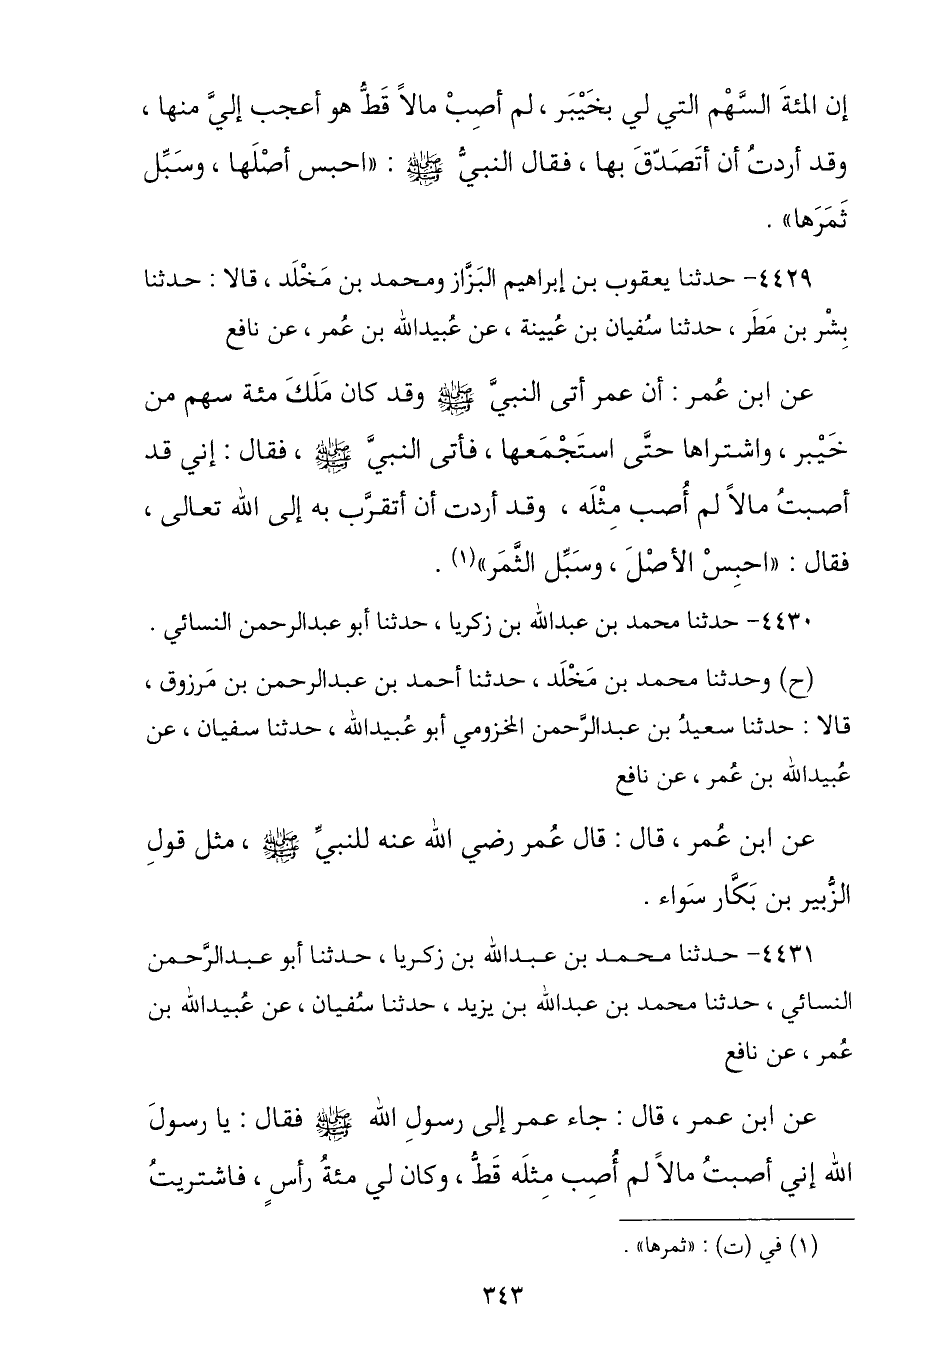 إن المئةَ السَّهْم التي لي بخَيْبَر ، لم أصِبْ مالاً قَطُّ هو أعجب إليَّ منها ،
وقد أردتُ أن أتَصَدّقَ بها ، فقال النبيُّ ﷺ : «احبس أصْلَها ، وسَبِّل
ثَمَرَها» .
٤٤٢٩- حدثنا يعقوب بن إبراهيم البَزَّاز ومحمد بن مَخْلَد ، قالا : حدثنا
بِشْر بن مَطَر ، حدثنا سُفيان بن عُيينة ، عن عُبيدالله بن عُمر ، عن نافع
عن ابن عُمر : أن عمر أتى النبيَّ ﷺ وقد كان مَلَكَ مئة سهم من
خَيْبر ، واشتراها حتَّى استَجْمَعها ، فأتى النبيَّ ﷺ ، فقال : إني قد
أصبتُ مالاً لم أُصِب مِثْلَه ، وقد أردت أن أتقرَّب به إلى الله تعالى ،
فقال : «احبِسْ الأصْلَ ، وسَبِّل الثَّمَر»(١) .
٤٤٣٠- حدثنا محمد بن عبدالله بن زكريا ، حدثنا أبو عبدالرحمن النسائي .
(ح) وحدثنا محمد بن مَخْلَد ، حدثنا أحمد بن عبدالرحمن بن مَرزوق ،
قالا : حدثنا سعيدُ بن عبدالرَّحمن المخزومي أبو عُبيدالله ، حدثنا سفيان ، عن
عُبيدالله بن عُمر ، عن نافع
عن ابن عُمر ، قال : قال عُمر رضي الله عنه للنبيِّ ﷺ ، مثل قولِ
الزُّبير بن بَكَّار سَواء .
٤٤٣١- حدثنا محمد بن عبدالله بن زكريا ، حدثنا أبو عبدالرَّحمن
النسائي ، حدثنا محمد بن عبدالله بن يزيد ، حدثنا سُفيان ، عن عُبيدالله بن
عُمر ، عن نافع
عن ابن عمر ، قال : جاء عمر إلى رسولِ الله ﷺ فقال : يا رسولَ
الله إني أصبتُ مالاً لم أُصِب مِثلَه قَطُّ ، وكان لي مئةُ رأسٍ ، فاشتريتُ
(١) في (ت) : «ثمرها» .
٣٤٣